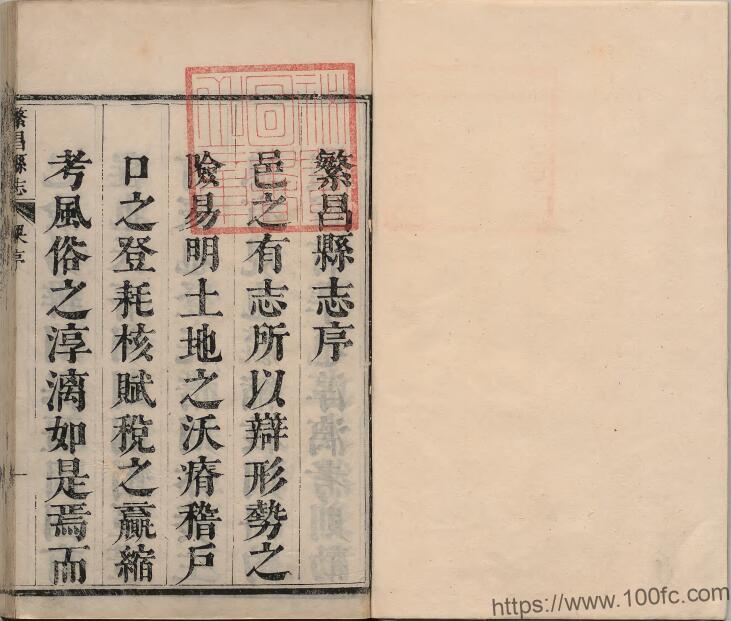 繁昌縣志序
邑之有志所以辯形勢之
險易明土地之沃瘠稽戶
口之登耗核賦稅之贏縮
考風俗之淳漓如是焉而
繁昌縣志
序
https://www.100fc.com